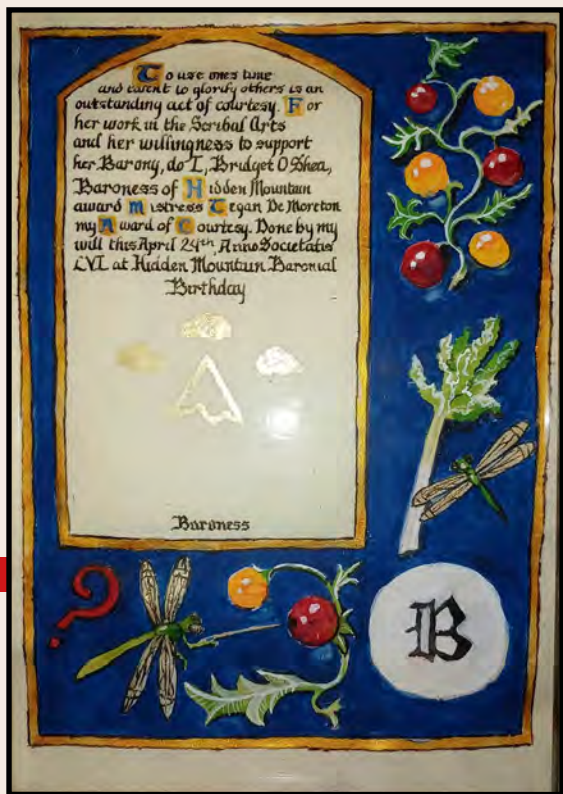 To use ones time
and talent to glorify others is an
outstanding act of courtesy. For
her work in the Scribal Arts
and her willingness to support
her Barony, do I, Bridget O Shea,
Baroness of Hidden Mountain
award Mistress Tegan De Moreton
my Award of Courtesy. Done by my
will this April 24th, Anno Societatis
LVI at Hidden Mountain Baronial
Birthday
Baroness
?
B